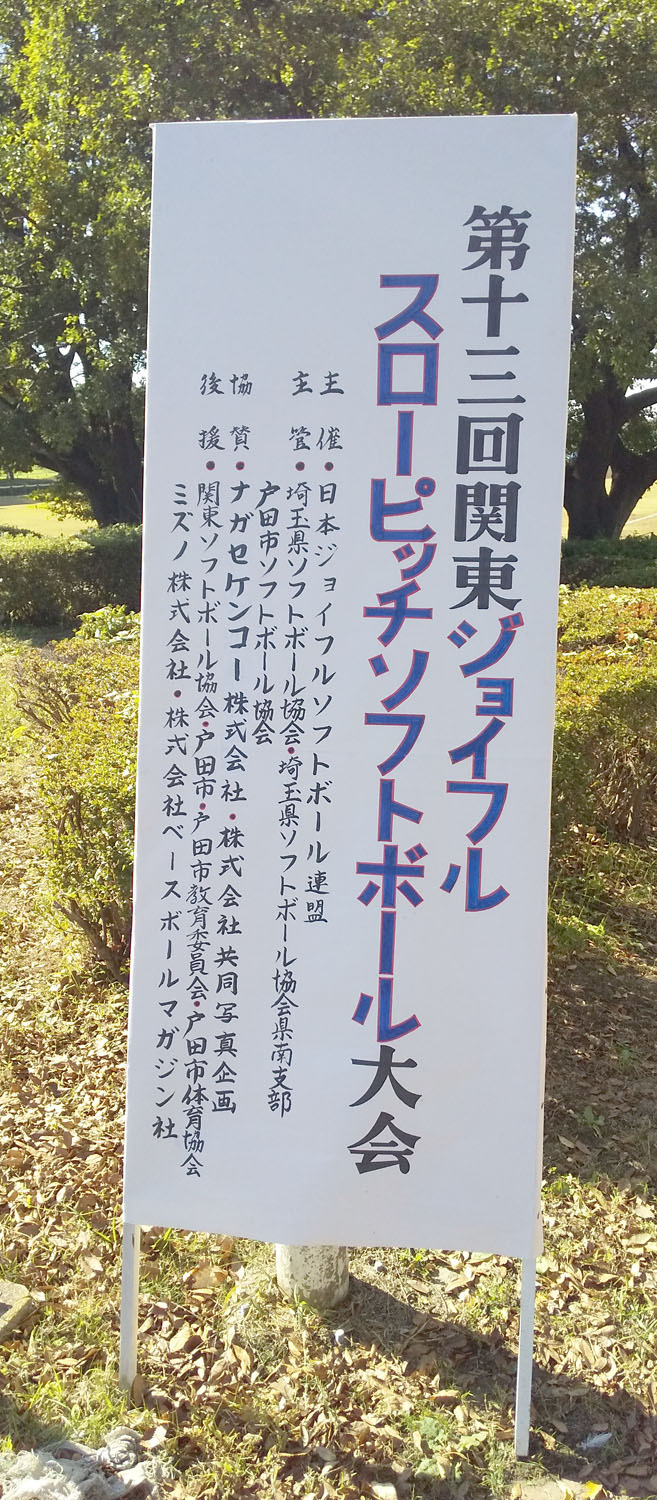 第十三回関東ジョイフル
スローピッチソフトボール大会
主催・日本ジョイフルソフトボール連盟
主管・埼玉県ソフトボール協会・埼玉県ソフトボール協会県南支部
戸田市ソフトボール協会
協賛・ナガセケンコー株式会社・株式会社共同写真企画
後援・関東ソフトボール協会・戸田市・戸田市教育委員会・戸田市体育協会
ミズノ株式会社・株式会社ベースボールマガジン社